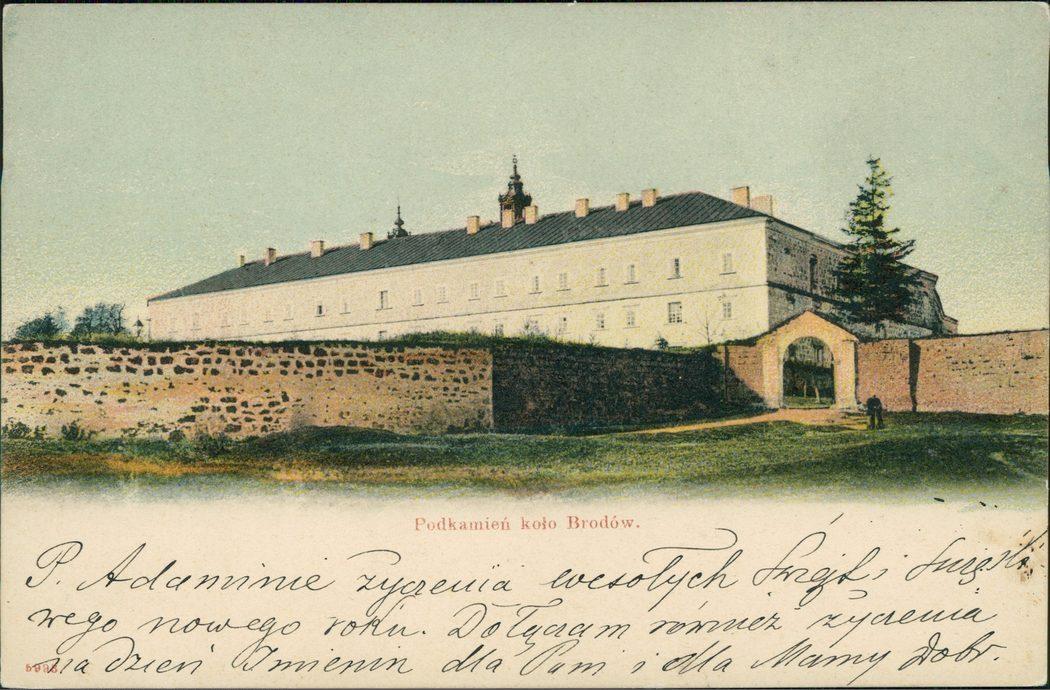 Podkamień koło Brodów.
P. Adaminie zyczenia wesołych Swiąt i Szczęśli
wego nowego roku. Dołączam również zyczenia
na dzień Imienin dla Pani i dla Mamy Dobr.